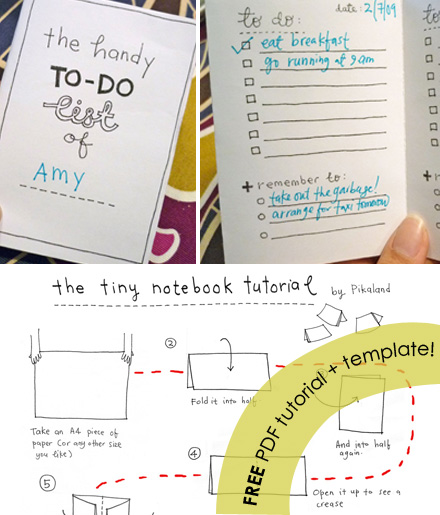 the handy
TO-DO
list
of
Amy
date: 2/7/09
to do:
eat breakfast
go running at 9am
+ remember to:
take out the garbage!
arrange for taxi tomorrow
to
the tiny notebook tutorial by Pikaland
Take an A4 piece of
paper (or any other size
you like)
②
Fold it into half
And into half
again.
④
Open it up to see a
crease
⑤
FREE PDF tutorial + template!